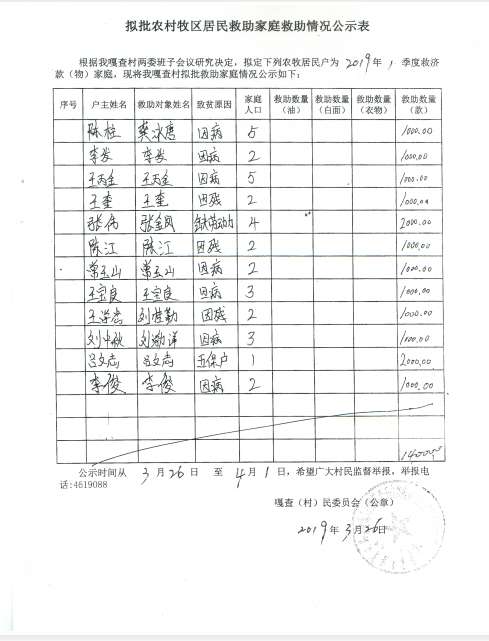 拟批农村牧区居民救助家庭救助情况公示表
根据我嘎查村两委班子会议研究决定，拟定下列农牧居民户为 2019 年 1 季度救济
款（物）家庭，现将我嘎查村拟批救助家庭情况公示如下：
序号 户主姓名 救助对象姓名 致贫原因 家庭人口 救助数量（油） 救助数量（白面） 救助数量（衣物） 救助数量（款）
陈桂 龚冰唐 因病 5 1000.00
李发 李发 因病 2 1000.00
王丙全 王丙全 因病 5 1000.00
王奎 王奎 因残 2 1000.00
张伟 张金凤 缺劳动力 4 2000.00
陈江 陈江 因残 2 1000.00
常玉山 常玉山 因病 2 1000.00
王宝良 王宝良 因病 3 1000.00
王学忠 刘桂勤 因残 2 1000.00
刘中秋 刘 因病 3 1000.00
吕文志 吕文志 五保户 1 2000.00
李俊 李俊 因病 2 1000.00
14000
公示时间从 3 月 26 日 至 4 月 1 日，希望广大村民监督举报，举报电
话:4619088
嘎查（村）民委员会（公章）
2019 年 3 月 26 日